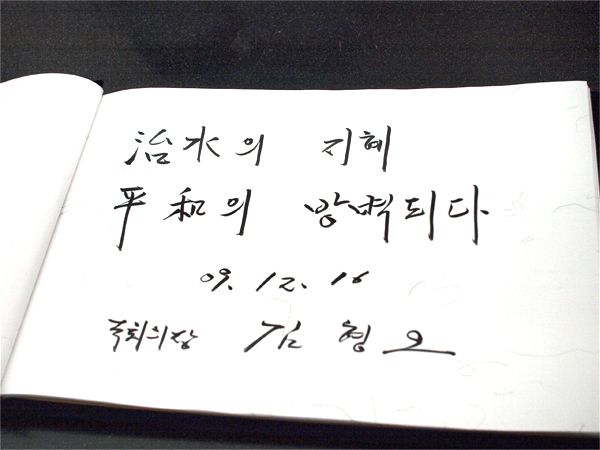 治水의 지혜
平和의 방벽되다
09. 12. 16
국회의장 김형오